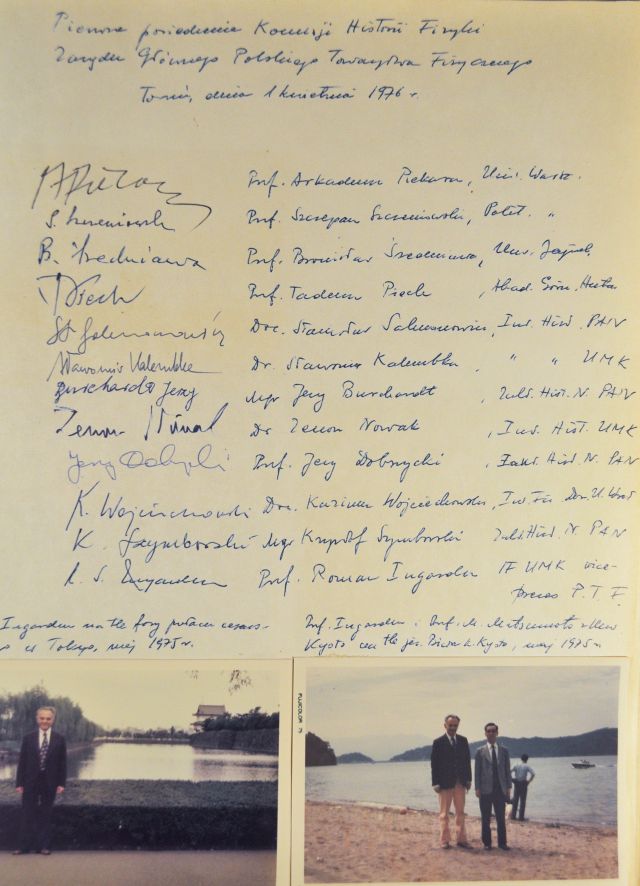 Pierwsze posiedzenie Komisji Historii Fizyki
Zarządu Głównego Polskiego Towarzystwa Fizycznego
Toruń, dnia 1 kwietnia 1976 r.
Prof. Arkadiusz Piekara, Uniw. Warsz.
S. Szczeniowski Prof. Szczepan Szczeniowski, Polit. "
B. Średniawa Prof. Bronisław Średniawa, Uniw. Jagiell.
Prof. Tadeusz Piech, Akad. Górn. Hutn.
Doc. Stanisław Salmonowicz, Inst. Hist. PAN
Sławomir Kalembka Dr. Sławomir Kalembka, " " UMK
Burchardt Jerzy Mgr Jerzy Burchardt, Zakł. Hist. N. PAN
Zenon Nowak Dr Zenon Nowak, Inst. Hist. UMK
Jerzy Dobrzycki Prof. Jerzy Dobrzycki, Zakł. Hist. N. PAN
K. Wojciechowski Doc. Kazimierz Wojciechowski, U. Wroc
K. Szymborski Mgr Krzysztof Szymborski Zakł. Hist. N. PAN
R. S. Ingarden Prof. Roman Ingarden IF UMK vice-
prezes P.T.F.
Ingarden na tle fosy pałacu cesars-
w Tokyo, maj 1975 r.
Prof. Ingarden i Prof. M. Matsumoto z Uniw
Kyoto na tle jez. Biwa k. Kyoto, maj 1975 r.
FUJICOLOR 75